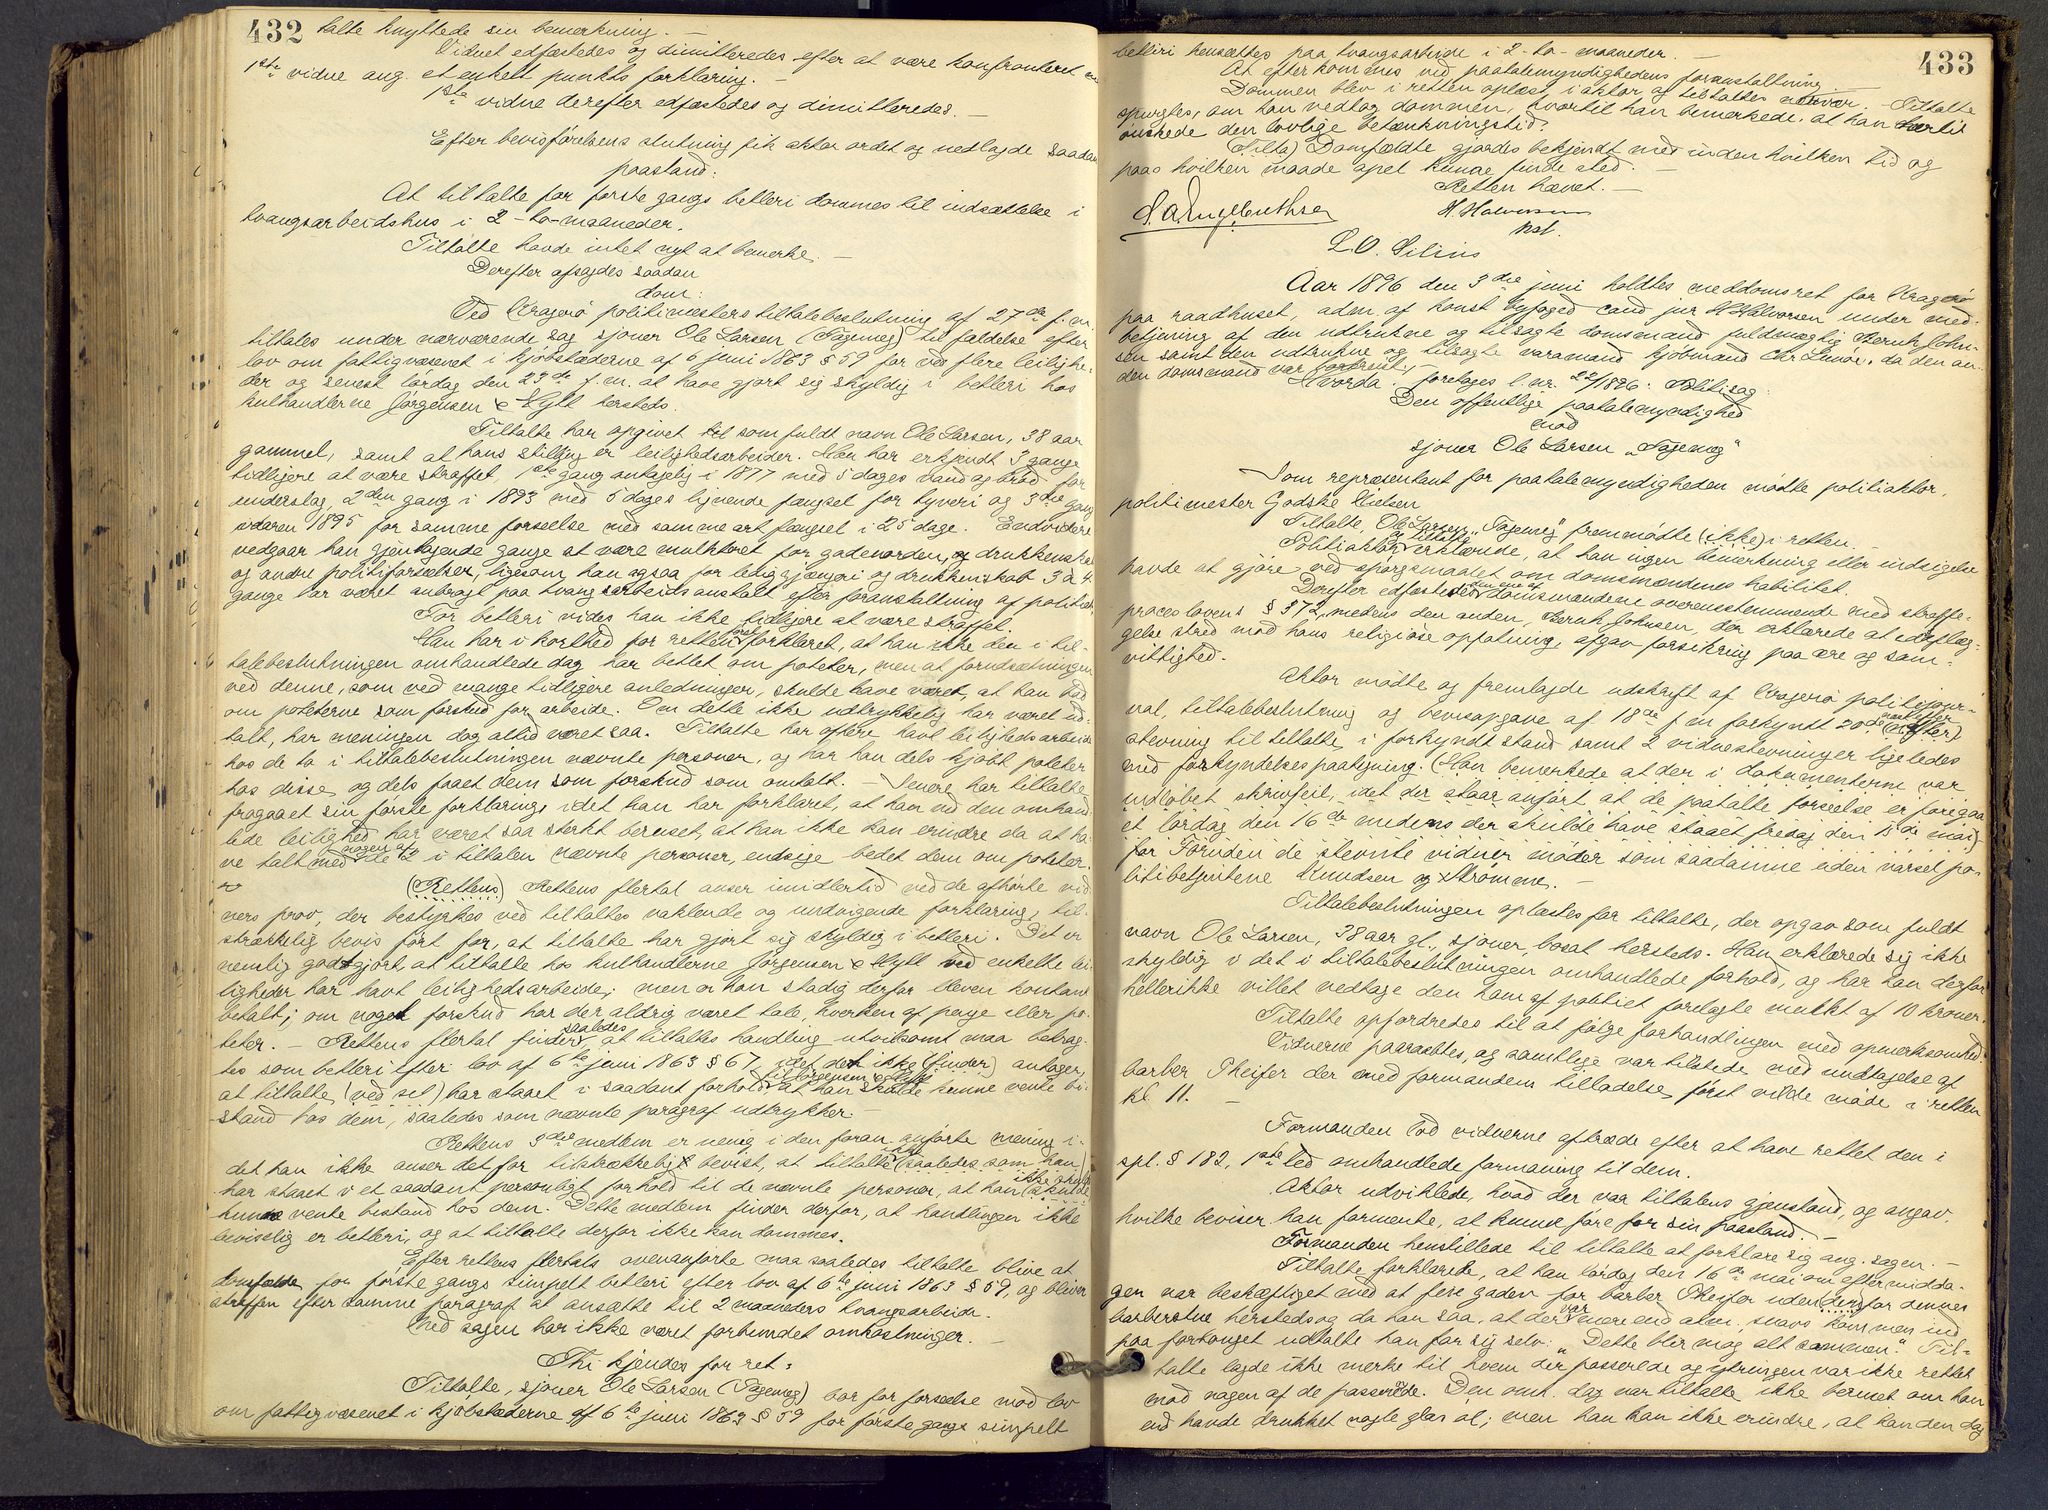 432
talte knyttede sin bemerkning. —
Vidnet edfæstedes og dimitteredes efter at være konfronteret m
1ste vidne ang. et enkelt punkts forklaring. —
1ste vidne derefter edfæstedes og dimitteredes. —
Efter bevisførelsens slutning fik aktor ordet og nedlagde saadan
paastand:
At tiltalte for første gangs betleri dømmes til indsættelse i
tvangsarbeidshus i 2 - to - maaneder.
Tiltalte havde intet nyt at bemerke. —
Derefter afsagdes saadan
dom:
Ved Kragerø politimesters tiltalebeslutning af 27de f. m.
tiltales under nærværende sag sjouer Ole Larsen (Tagemeg) til fældelse efter
lov om fattigvæsenet i kjøbstæderne af 6 juni 1863 § 59 for ved flere leilighe-
der og senest lørdag den 23de f. m. at have gjort sig skyldig i betleri hos
kulhandlerne Jørgensen & Hytt hersteds.
Tiltalte har opgivet til som fuldt navn Ole Larsen, 38 aar
gammel, samt at hans stilling er leilighedsarbeider. Han har erkjendt 3 gange
tidligere at være straffet, 1ste gang antagelig i 1877 med 5 dages vand og brød for
underslag, 2den gang i 1893 med 5 dages lignende fængsel for tyveri og 3die gang
vaaren 1895 for samme forseelse med samme art fængsel i 25 dage. Endvidere
vedgaar han gjentagende gange at være mulkteret for gadeuorden, og drukkenskab
og andre politiforseelser, ligesom han ogsaa for lediggjængeri og drukkenskab 3 à 4
gange har været anbragt paa tvangsarbeidsanstalt efter foranstaltning af politiet.
For betleri vides han ikke tidligere at være straffet.
Han har i korthed for retten først forklaret, at han ikke den i til-
talebeslutningen omhandlede dag har betlet om poteter, men at forudsætningen
ved denne, som ved mange tidligere anledninger, skulde have været, at han bad
om poteterne som forskud for arbeide. Om dette ikke udtrykkelig har været ud-
talt, har meningen dog altid været saa. Tiltalte har oftere havt leilighedsarbeide
hos de to i tiltalebeslutningen nævnte personer, og har han dels kjøbt poteter
hos disse og dels faaet dem som forskud som omtalt. — Senere har tiltalte
fragaaet sin første forklaring, idet han har forklaret, at han ved den omhand-
lede leilighed har været saa sterkt beruset, at han ikke kan erindre da at ha-
ve talt med nogen af de 2 i tiltalen nævnte personer, endsige bedet dem om poteter.
(Rettens) Rettens flertal anser imidlertid ved de afhørte vid-
ners prov, der bestyrkes ved tiltaltes vaklende og undvigende forklaring, til-
strækkelig bevis ført for, at tiltalte har gjort sig skyldig i betleri. Det er
nemlig godtgjort, at tiltalte hos kulhandlerne Jørgensen & Hytt ved enkelte lei-
ligheder har havt leilighedsarbeide; men er han stadig derfor bleven kontant
betalt; om noget forskud har der aldrig været tale, hverken af penge eller po-
teter. — Rettens flertal finder saaledes, at tiltaltes handling utvilsomt maa betrag-
tes som betleri efter lov af 6te juni 1863 § 67, idet det ikke (finder) antager,
at tiltalte (ved sit) har staaet i saadant forhold til Jørgensen & Hytt at han skulde kunne vente bi-
stand hos dem, saaledes som nævnte paragraf udtrykker. —
Rettens 3die medlem er uenig i den foran anførte mening i-
det han ikke anser det for tilstrækkelig bevist, at tiltalte ikke (saaledes som han)
har staaet i et saadant personligt forhold til de nævnte personer, at han ikke skulde
kunne vente bistand hos dem. Dette medlem finder derfor, at handlingen ikke
beviselig er betleri, og at tiltalte derfor ikke kan dømmes.
Efter rettens flertals ovenanførte maa saaledes tiltalte blive at
domfælde for første gangs simpelt betleri efter lov af 6te juni 1863 § 59, og bliver
straffen efter samme paragraf at ansætte til 2 maaneders tvangsarbeide.
Med sagen har ikke været forbundet omkostninger. —
Thi kjendes for ret:
Tiltalte, sjouer Ole Larsen (Tagemeg) bør for forseelse mod lov
om fattigvæsenet i kjøbstæderne af 6te juni 1863 § 59 for første gangs simpelt
433
betleri hensættes paa tvangsarbeide i 2 - to - maaneder. —
At efterkommes ved paatalemyndighedens foranstaltning.
Dommen blev i retten oplæst i aktor og tiltaltes nærvær. — Tiltalte
spurgtes, om han vedtog dommen, hvortil han bemerkede, at han hertil
ønskede den lovlige betænkningstid.
(Tilta) Domfældte gjordes bekjendt med inden hvilken tid og
paa hvilken maade apel kunde finde sted. —
Retten hævet. —
H. Halvorsen
kst.
L. O. Silius
Aar 1896 den 3die juni holdtes meddomsret for Kragerø
paa raadhuset, adm. af konst. byfoged cand. jur. H. Halvorsen under med-
betjening af den udtrukne og tilsagte domsmand fuldmægtig Bernh. John-
sen samt den udtrukne og tilsagte varamand kjøbmand Chr. Linør, da den an-
den domsmand var forfrent.
Hvorda: foretoges l. nr. 22/1896: Politisag:
Den offentlige paatalemyndighed
mod
sjouer Ole Larsen „Tagemeg"
Som repræsentant for paatalemyndigheden mødte politiaktor,
politimester Godske Nielsen
Tiltalte, Ole Larsen „Tagemeg" fremmødte (ikke) i retten. —
Politiaktor og tiltalte erklærede, at han ingen bemerkning eller indsigelse
havde at gjøre ved spørgsmaalet om domsmændenes habilitet.
Derefter edfæstedes den ene af domsmændene overensstemmende med straffe-
proceslovens § 372, medens den anden, Bernh. Johnsen, der erklærede at edaflæg-
gelse stred mod hans religiøse opfatning, afgav forsikring paa ære og sam-
vittighed.
Aktor mødte og fremlagde udskrift af Kragerø politijour-
nal, tiltalebeslutning og bevisopgave af 18de f. m. forkyndt 20de næstefter (n. efter)
stevning til tiltalte i forkyndt stand samt 2 vidnestevninger ligeledes
med forkyndelsespaategning. (Han bemerkede at der i dokumenterne var
indløbet skrivfeil, idet der staar anført at de paatalte forseelse er foregaa
et lørdag den 16de medens der skulde have staaet fredag den 15de mai)
før Foruden de stevnte vidner møder som saadanne uden varsel po-
litibetjentene Knudsen og Strømme. —
Tiltalebeslutningen oplæstes for tiltalte, der opgav som fuldt
navn Ole Larsen, 38 aar gl., sjouer, bosat hersteds. Han erklærede sig ikke
skyldig i det i tiltalebeslutningen omhandlede forhold, og har han derfor
heller ikke villet vedtage den ham af politiet forelagte mulkt af 10 kroner.
Tiltalte opfordredes til at følge forhandlingen med opmerksomhed.
Vidnerne paaraabtes, og samtlige var tilstede med undtagelse af
barber Pheifer der med formandens tilladelse først vilde møde i retten
kl. 11. —
Formanden lod vidnerne aftræde efter at have rettet den i
spl. § 182, 1ste led omhandlede formaning til dem.
Aktor udviklede, hvad der var tiltalens gjenstand, og angav,
hvilke beviser han formente, at kunne føre for sin paastand. —
Formanden henstillede til tiltalte at forklare sig ang. sagen. —
Tiltalte forklarede, at han lørdag den 16de mai om eftermidda-
gen var beskjæftiget med at feie gaden for barber Pheifer uden (der) for dennes
barberstue hersteds og da han saa, at der var mere end alm. snavs kommen ind
paa fortouget udtalte han for sig selv: „Dette blir mog alt sammen." Til-
talte lagde ikke merke til hvem der passerede og ytringen var ikke rettet
mod nogen af de passerede. Den omt. dag var tiltalte ikke beruset om han
end havde drukket nogle glas øl; men han kan ikke erindre, at han den dag